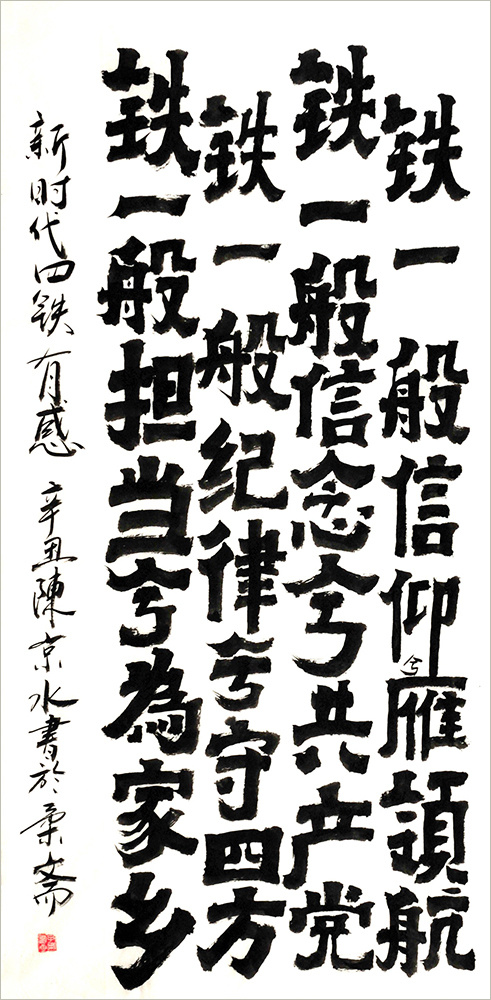 铁一般信仰兮雁領航
铁一般信念兮共产党
铁一般纪律兮守四方
铁一般担当兮為家乡
新时代四鉄有感 辛丑陳京水書於柔斋